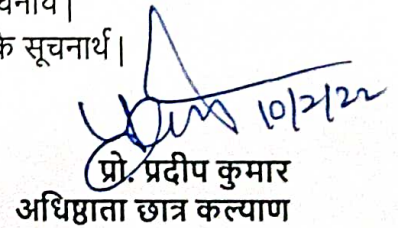 के सूचनार्थ|
10/2/22
प्रो. प्रदीप कुमार
अधिष्ठाता छात्र कल्याण